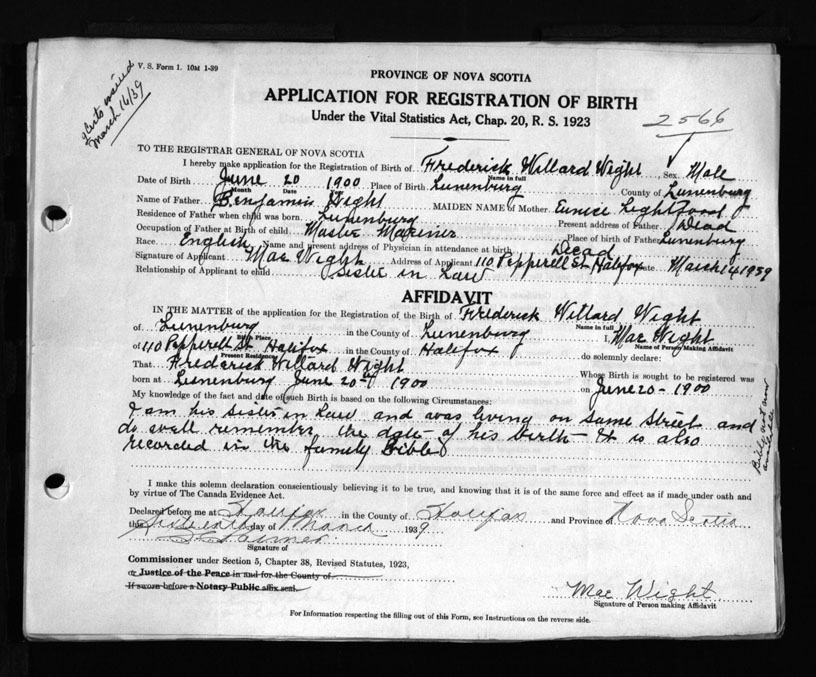 V. S. Form 1. 10M 1-39
March 16/39
PROVINCE OF NOVA SCOTIA
APPLICATION FOR REGISTRATION OF BIRTH
Under the Vital Statistics Act, Chap. 20, R. S. 1923
2566
TO THE REGISTRAR GENERAL OF NOVA SCOTIA
I hereby make application for the Registration of Birth of Frederick Willard Wight, Sex Male
Name in full
Date of Birth June 20 1900 Place of Birth Lunenburg County of Lunenburg
Month Date
Name of Father Benjamin Wight MAIDEN NAME of Mother Eunice
Residence of Father when child was born. Lunenburg Present address of Father Dead
Occupation of Father at Birth of child. Master Mariner Place of birth of Father Lunenburg
Race. English Name and present address of Physician in attendance at birth Dead
Signature of Applicant Mae Wight Address of Applicant 110 Pepperell St Halifax Date March 14 1939
Relationship of Applicant to child Sister in Law
AFFIDAVIT
IN THE MATTER of the application for the Registration of the Birth of Frederick Willard Wight
Name in full
of Lunenburg in the County of Lunenburg I, Mae Wight
Birth Place Name of Person Making Affidavit
of 110 Pepperell St. Halifax in the County of Halifax do solemnly declare:
Present Residence
That Frederick Willard Wight Whose Birth is sought to be registered was
born at Lunenburg June 20th 1900 on June 20 - 1900
My knowledge of the fact and date of such Birth is based on the following Circumstances:
I am his Sister in Law and was living on same street and
do well remember the date of his birth - It is also
recorded in the family Bible
Bible not now available
I make this solemn declaration conscientiously believing it to be true, and knowing that it is of the same force and effect as if made under oath and
by virtue of The Canada Evidence Act.
Declared before me at Halifax in the County of Halifax and Province of Nova Scotia
this Sixteenth day of March 1939
Signature of
Commissioner under Section 5, Chapter 38, Revised Statutes, 1923,
or Justice of the Peace in and for the County of
If sworn before a Notary Public affix seal.
Mae Wight
Signature of Person making Affidavit
For Information respecting the filling out of this Form, see Instructions on the reverse side.